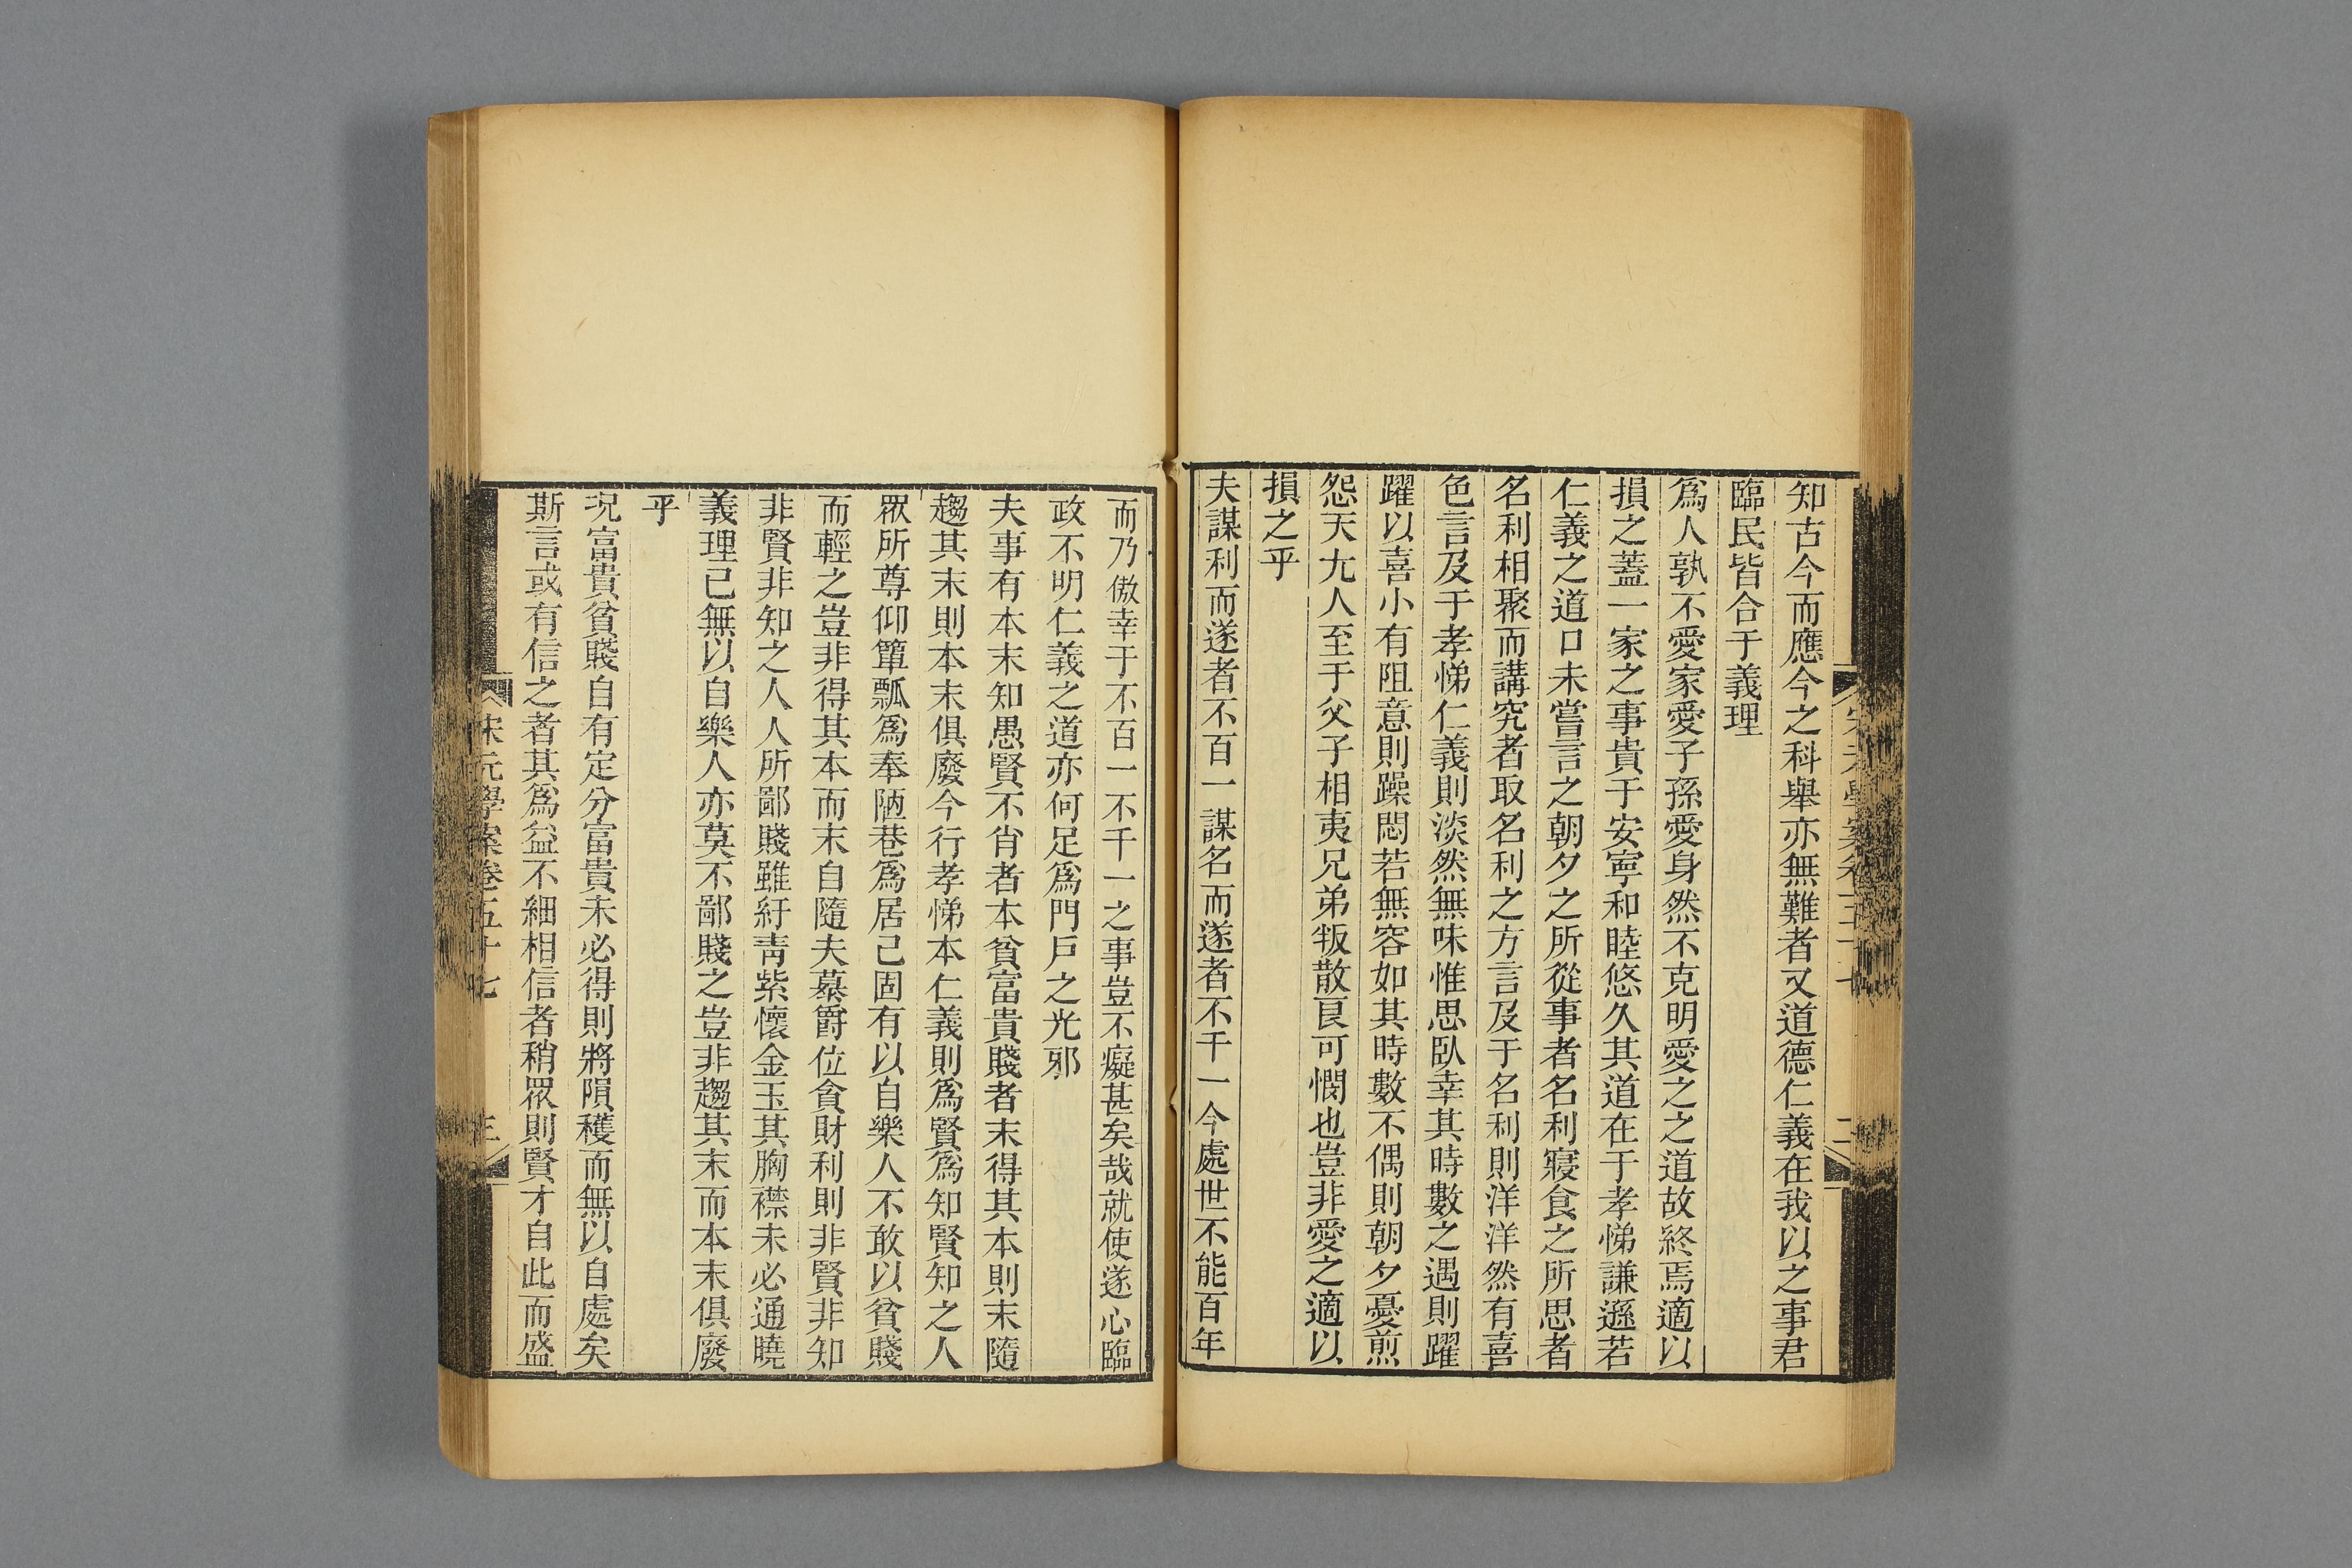 知古今而應今之科舉亦無難者又道德仁義在我以之事君
臨民皆合于義理
爲人孰不愛家愛子孫愛身然不克明愛之之道故終焉適以
損之蓋一家之事貴于安寧和睦悠久其道在于孝悌謙遜若
仁義之道口未嘗言之朝夕之所從事者名利寢食之所思者
名利相聚而講究者取名利之方言及于名利則洋洋然有喜
色言及于孝悌仁義則淡然無味惟思臥幸其時數之遇則躍
躍以喜小有阻意則躁悶若無容如其時數不偶則朝夕憂煎
怨天尤人至于父子相夷兄弟叛散良可憫也豈非愛之適以
損之乎
夫謀利而遂者不百一謀名而遂者不千一今處世不能百年
而乃僥幸于不百一不千一之事豈不癡甚矣哉就使遂心臨
政不明仁義之道亦何足爲門戶之光邪
夫事有本末知愚賢不肖者本貧富貴賤者末得其本則末隨
趨其末則本末俱廢今行孝悌本仁義則爲賢爲知賢知之人
眾所尊仰簞瓢爲奉陋巷爲居己固有以自樂人不敢以貧賤
而輕之豈非得其本而末自隨夫慕爵位貪財利則非賢非知
非賢非知之人人所鄙賤雖紆青紫懷金玉其胸襟未必通曉
義理已無以自樂人亦莫不鄙賤之豈非趨其末而本末俱廢
乎
況富貴貧賤自有定分富貴未必得則將隕穫而無以自處矣
斯言或有信之者其爲益不細相信者稍眾則賢才自此而盛
宋元學案卷五十七
三